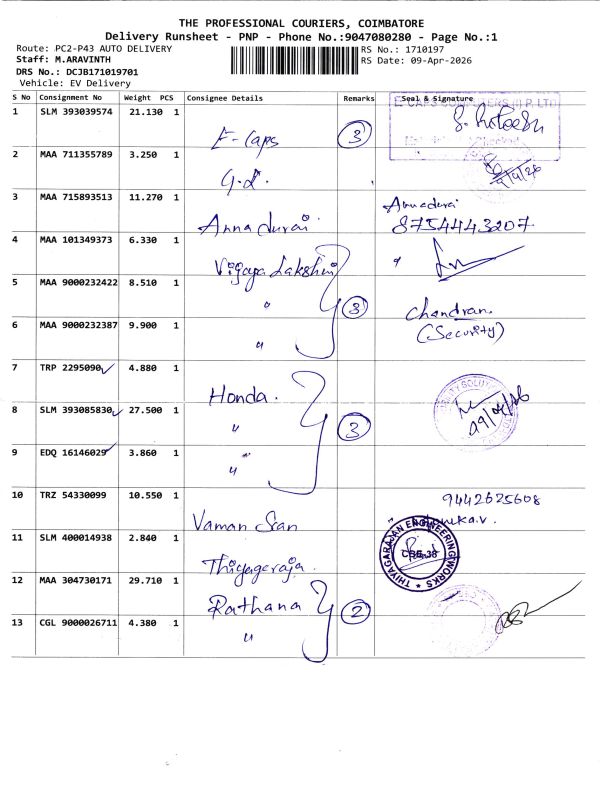 THE PROFESSIONAL COURIERS, COIMBATORE
Delivery Runsheet - PNP - Phone No.:9047080280 - Page No.:1
Route: PC2-P43 AUTO DELIVERY
RS No.: 1710197
Staff: M.ARAVINTH
RS Date: 09-Apr-2026
DRS No.: DCJB171019701
Vehicle: EV Delivery
S No Consignment No Weight PCS Consignee Details Remarks Seal & Signature
1 SLM 393039574 21.130 1 E-Caps 3
2 MAA 711355789 3.250 1 G.L. 9/4/26
3 MAA 715893513 11.270 1 Annadurai Annadurai
8754443207
4 MAA 101349373 6.330 1 Vijaya Lakshmi
5 MAA 9000232422 8.510 1 " 3 Chandran.
6 MAA 9000232387 9.900 1 " (Security)
7 TRP 2295090 4.880 1 Honda.
8 SLM 393085830 27.500 1 " 3
9 EDQ 16146029 3.860 1 "
10 TRZ 54330099 10.550 1 Vaman 9442625608
11 SLM 400014938 2.840 1 Thiyageraja THIYAGARAJAN ENGINEERING WORKS CBE-38
12 MAA 304730171 29.710 1 Rathana 2
13 CGL 9000026711 4.380 1 "